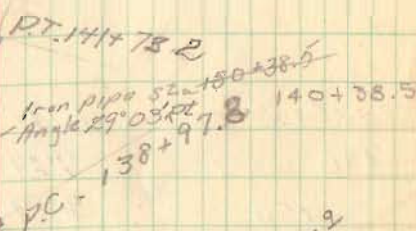 P.T. 141+73.2
Iron pipe Sta 130+38.5 140+38.5
Angle 29°03' Rt
P.C - 138+97.8